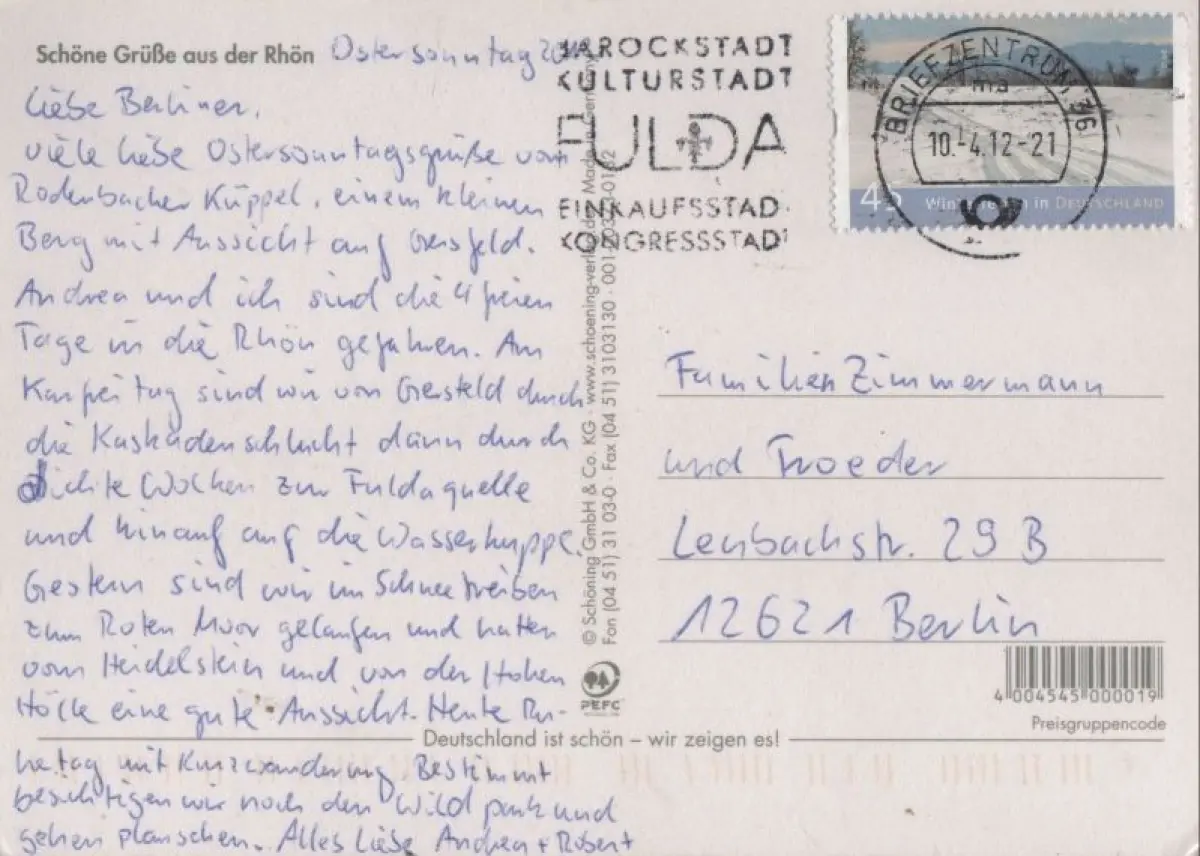 Schöne Grüße aus der Rhön
Ostersonntag
Liebe Berliner,
viele liebe Ostersonntagsgrüße vom
Rodenbacher Küppel, einem kleinen
Berg mit Aussicht auf Gersfeld.
Andrea und ich sind die 4 freien
Tage in die Rhön gefahren. Am
Karfreitag sind wir von Gersfeld durch
die Kaskadenschlucht dann durch
dichte Wolken zur Fuldaquelle
und hinauf auf die Wasserkuppe.
Gestern sind wir im Schneetreiben
zum Roten Moor gelaufen und hatten
vom Heidelstein und von der Hohen
Hölle eine gute Aussicht. Heute Ru-
hetag mit Kurzwanderung. Bestimmt
besichtigen wir noch den Wildpark und
gehen planschen. Alles Liebe Andrea + Robert
BAROCKSTADT
KULTURSTADT
FULDA
EINKAUFSSTADT
KONGRESSSTADT
BRIEFZENTRUM 36
10.-4.12-21
45
in DEUTSCHLAND
© Schöning GmbH & Co. KG · www.schoening-verlag.de
Fon (04 51) 31 03-0 · Fax (04 51) 3103130
PEFC
Familien Zimmermann
und Troeder
Lenbachstr. 29 B
12621 Berlin
4 004545 000019
Preisgruppencode
Deutschland ist schön – wir zeigen es!